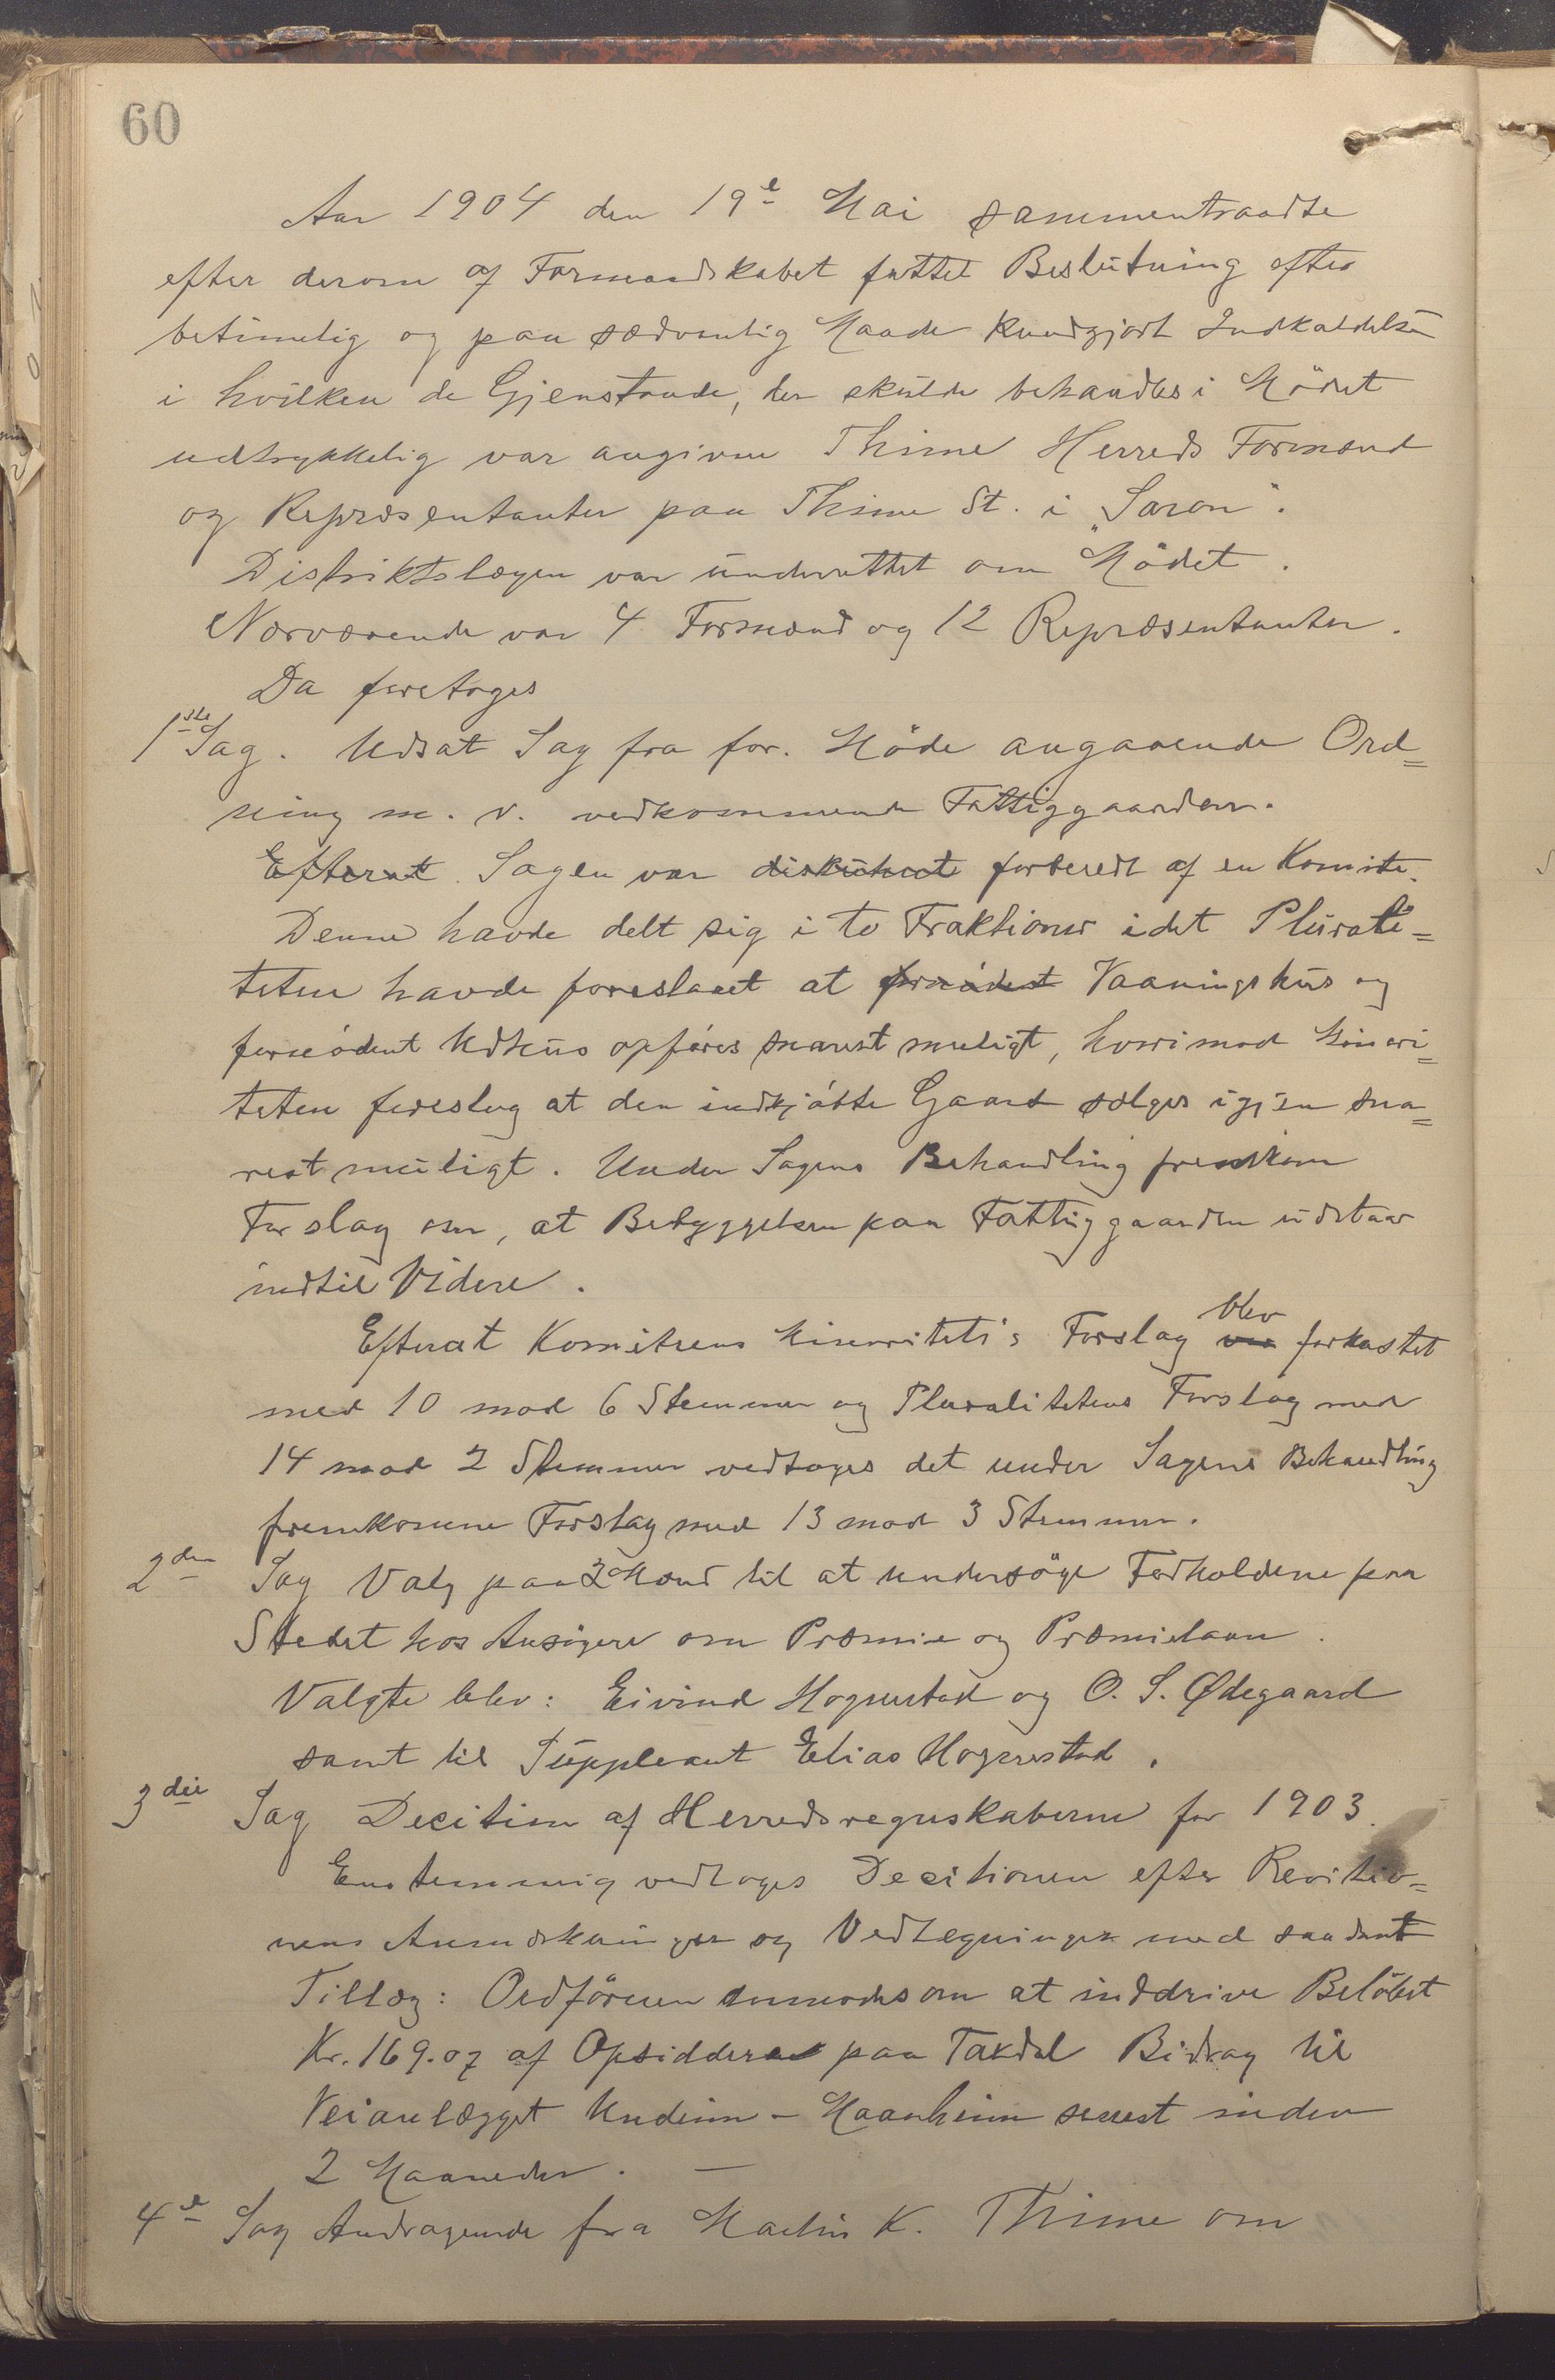 60
Aar 1904 den 19e Mai sammentraadte
efter derom af Formandskabet fattet Beslutning efter
betimelig og paa sædvanlig Maade kundgjort Indkaldelse
i hvilken de Gjenstande, der skulde behandles i Mödet
udtrykkelig var angivne Thime Herreds Formænd
og Repræsentanter paa Thime St. i „Saron".
Distriktslægen var underrettet om Mödet.
Nærværende var 4 Formænd og 12 Repræsentanter.
Da foretoges
1ste Sag. Udsat Sag fra for. Möde angaaende Ord=
ning m. v. vedkommende Fattiggaarden.
Efterat Sagen var diskuteret forberedt af en Komite.
Denne havde delt sig i to Fraktioner idet Plurali=
teten havde foreslaaet at Vaaningshus og
fornödent Udhus opföres snarest muligt, hvorimod Minori=
teten foreslog at den indkjöbte Gaard sælges igjen sna=
rest muligt. Under Sagens Behandling fremkom
Forslag om, at Bebyggelsen paa Fattiggaarden udstaar
indtil Videre.
Efterat Komiteens Minoritets Forslag var blev forkastet
med 10 mod 6 Stemmer og Pluralitetens Forslag med
14 mod 2 Stemmer vedtoges det under Sagens Behandling
fremkomne Forslag med 13 mod 3 Stemmer.
2den Sag Valg paa 2 Mænd til at undersöge Forholdene paa
Stedet hos Ansögere om Præmie og Præmielaan.
Valgte blev: Eivind Hognestad og O. S. Ødegaard
samt til Suppleant Elias Hognestad.
3die Sag Decition af Herredsregnskaberne for 1903.
Enstemmig vedtoges Decitionen efter Revitio=
nens Anmærkninger og Vedtegninger med saadant
Tillæg: Ordföreren anmodes om at inddrive Belöbet
Kr. 169.07 af Opsidderne paa Taxdal Bidrag til
Veianlægget Undeim - Haanheim senest inden
2 Maaneder. —
4e Sag Andragende fra Martin K. Thime om